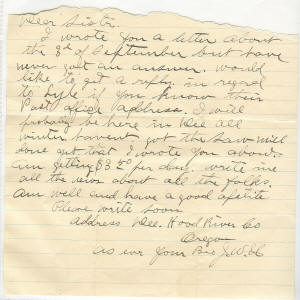 Dear Sister.
I wrote you a letter about
the 3d of September but have
never got an answer. Would
like to get a reply in regard
to Lyle if you know their
Post office address. I will
probably be here in Dee all
winter havent got the saw mill
done yet that I wrote you about.
am getting $3.50 per day. Write me
all the news about all the folks.
Am well and have a good apetite
Please write soon
Address Dee. Hood River Co
Oregon
as ever Your Bro